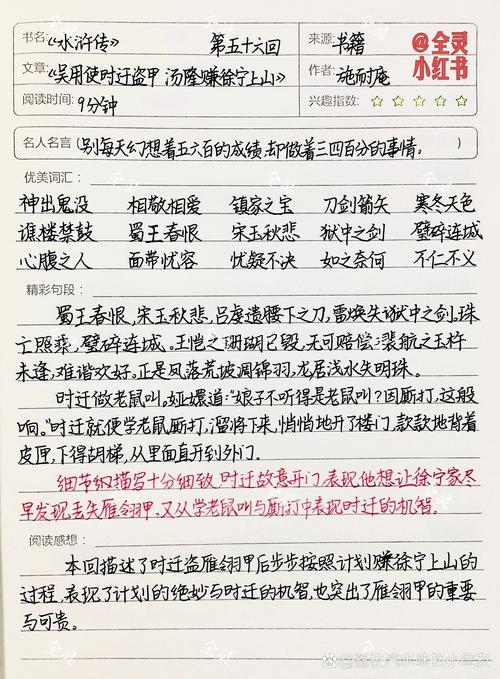 书名:《水浒传》 第五十六回 来源: 书籍 @全灵
文章:《吴用使时迁盗甲 汤隆赚徐宁上山》 作者: 施耐庵 小红书
阅读时间: 9分钟 兴趣指数: ☆ ☆ ☆ ☆ ☆
名人名言:(别每天幻想着五六百的成绩,却做着三四百分的事情。
优美词汇:
神出鬼没 相敬相爱 镇家之宝 刀剑箭矢 寒冬天色
谯楼禁鼓 蜀王春恨 宋玉秋悲 狱中之剑 璧碎连城
心腹之人 面带忧容 忧疑不决 如之奈何 不仁不义
精彩句段:
蜀王春恨,宋玉秋悲,吕虔遗腰下之刀,雷焕失狱中之剑,珠
亡照乘,璧碎连城。王恺之珊瑚已毁,无可赔偿;裴航之玉杵
未逢,难谐欢好。正是凤落荒坡凋锦羽,龙居浅水失明珠。
时迁做老鼠叫。娅嬛道:“娘子不听得是老鼠叫?因厮打,这般
响。”时迁就便学老鼠厮打,溜将下来,悄悄地开了楼门,款款地背着
皮匣,下得胡梯,从里面直开到外门。
细节的描写十分细致,时迁故意开门,表现他想让徐宁家尽
早发现丢失雁翎甲,又从学老鼠叫与厮打中表现时迁的机智。
阅读感想:
本回描述了时迁盗雁翎甲后步步按照计划赚徐宁上山的
过程,表现了计划的绝妙与时迁的机智,也突出了雁翎甲的重要
与可贵。